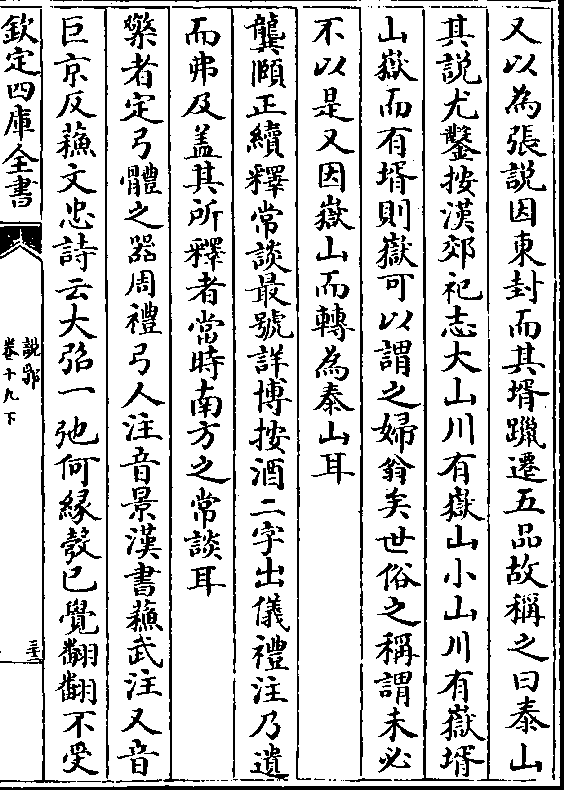 又以為張説因東封而其壻躐遷五品故稱之曰泰山
其説尤鑿按漢郊祀志大山川有嶽山小山川有嶽壻
山嶽而有壻則嶽可以謂之婦翁矣世俗之稱謂未必
不以是又因嶽山而轉為泰山耳
龔頤正續釋常談最號詳博按酒二字出儀禮注乃遺
而弗及盖其所釋者當時南方之常談耳
檠者定弓體之器周禮弓人注音景漢書蘇武注又音
巨京反蘓文忠詩云大弨一弛何緣彀已覺翻翻不受
欽定四庫全書
説郛
卷十九下